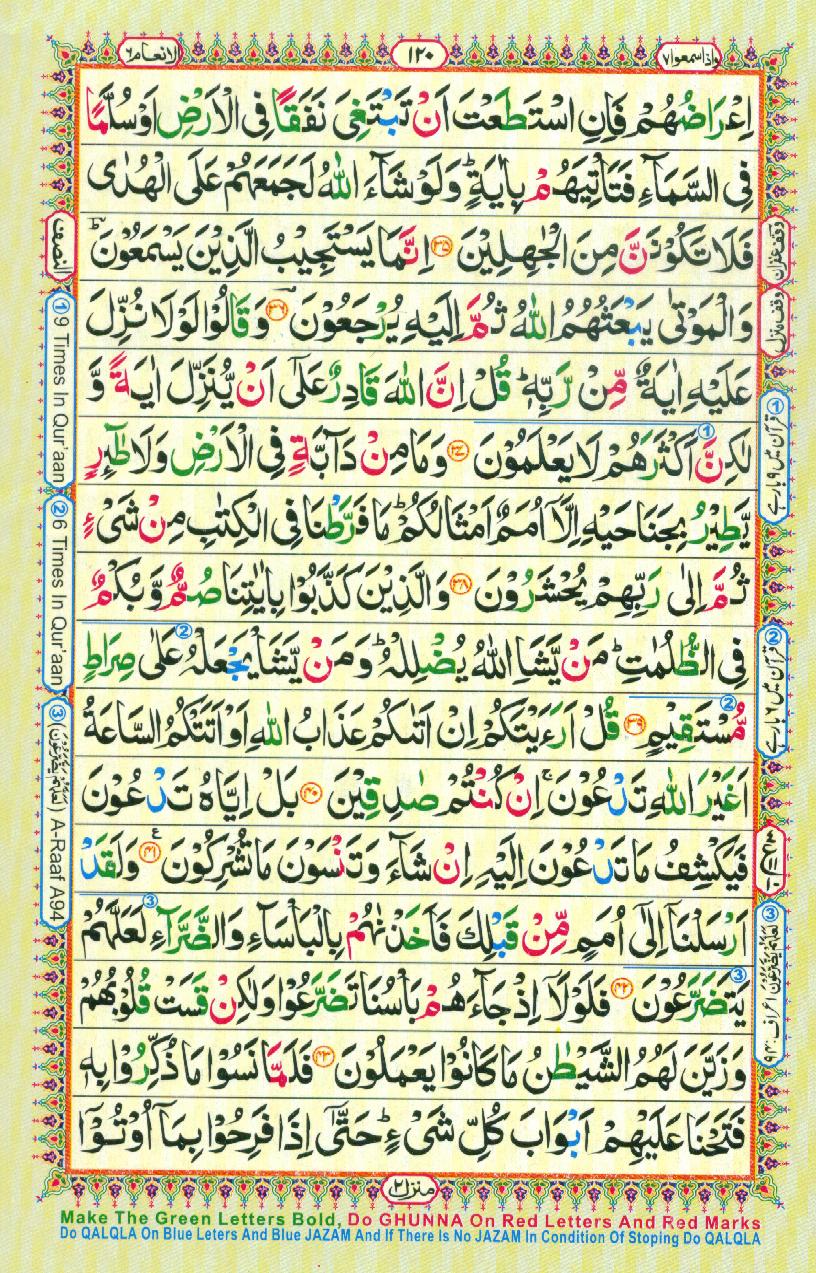 واذاسمعوا٧
١٢٠
الانعام٦
اِعْرَاضُهُمْ فَاِنِ اسْتَطَعْتَ اَنْ تَبْتَغِیَ نَفَقًا فِی الْاَرْضِ اَوْ سُلَّمًا
فِی السَّمَآءِ فَتَاْتِیَهُمْ بِاٰیَةٍ ؕ وَلَوْ شَآءَ اللّٰهُ لَجَمَعَهُمْ عَلَی الْهُدٰی
فَلَا تَكُوْنَنَّ مِنَ الْجٰهِلِیْنَ ﴿۳۵﴾ اِنَّمَا یَسْتَجِیْبُ الَّذِیْنَ یَسْمَعُوْنَ ؕ
وَالْمَوْتٰی یَبْعَثُهُمُ اللّٰهُ ثُمَّ اِلَیْهِ یُرْجَعُوْنَ ﴿۳۶﴾ وَقَالُوْا لَوْلَا نُزِّلَ
عَلَیْهِ اٰیَةٌ مِّنْ رَّبِّهٖ ؕ قُلْ اِنَّ اللّٰهَ قَادِرٌ عَلٰۤی اَنْ یُّنَزِّلَ اٰیَةً وَّ
لٰكِنَّ اَكْثَرَهُمْ لَا یَعْلَمُوْنَ ﴿۳۷﴾ وَمَا مِنْ دَآبَّةٍ فِی الْاَرْضِ وَلَا طٰٓئِرٍ
یَّطِیْرُ بِجَنَاحَیْهِ اِلَّاۤ اُمَمٌ اَمْثَالُكُمْ ؕ مَا فَرَّطْنَا فِی الْكِتٰبِ مِنْ شَیْءٍ
ثُمَّ اِلٰی رَبِّهِمْ یُحْشَرُوْنَ ﴿۳۸﴾ وَالَّذِیْنَ كَذَّبُوْا بِاٰیٰتِنَا صُمٌّ وَّبُكْمٌ
فِی الظُّلُمٰتِ ؕ مَنْ یَّشَاِ اللّٰهُ یُضْلِلْهُ ؕ وَمَنْ یَّشَاْ یَجْعَلْهُ عَلٰی صِرَاطٍ
مُّسْتَقِیْمٍ ﴿۳۹﴾ قُلْ اَرَءَیْتَكُمْ اِنْ اَتٰىكُمْ عَذَابُ اللّٰهِ اَوْ اَتَتْكُمُ السَّاعَةُ
اَغَیْرَ اللّٰهِ تَدْعُوْنَ ۚ اِنْ كُنْتُمْ صٰدِقِیْنَ ﴿۴۰﴾ بَلْ اِیَّاهُ تَدْعُوْنَ
فَیَكْشِفُ مَا تَدْعُوْنَ اِلَیْهِ اِنْ شَآءَ وَتَنْسَوْنَ مَا تُشْرِكُوْنَ ﴿۴۱﴾ وَلَقَدْ
اَرْسَلْنَاۤ اِلٰۤی اُمَمٍ مِّنْ قَبْلِكَ فَاَخَذْنٰهُمْ بِالْبَاْسَآءِ وَالضَّرَّآءِ لَعَلَّهُمْ
یَتَضَرَّعُوْنَ ﴿۴۲﴾ فَلَوْلَاۤ اِذْ جَآءَهُمْ بَاْسُنَا تَضَرَّعُوْا وَلٰكِنْ قَسَتْ قُلُوْبُهُمْ
وَزَیَّنَ لَهُمُ الشَّیْطٰنُ مَا كَانُوْا یَعْمَلُوْنَ ﴿۴۳﴾ فَلَمَّا نَسُوْا مَا ذُكِّرُوْا بِهٖ
فَتَحْنَا عَلَیْهِمْ اَبْوَابَ كُلِّ شَیْءٍ ؕ حَتّٰۤی اِذَا فَرِحُوْا بِمَاۤ اُوْتُوْۤا
وقف غفران
وقف منزل
① قرآن میں ۹ بار ہے
② قرآن میں ۶ بار ہے
③ لَعَلَّهُمْ یَضَّرَّعُوْنَ اعراف: ۹۴
النصف
① 9 Times In Qur'aan
② 6 Times In Qur'aan
③ (لَعَلَّهُمْ یَضَّرَّعُوْنَ) A-Raaf A94
منزل٢
Make The Green Letters Bold, Do GHUNNA On Red Letters And Red Marks
Do QALQLA On Blue Leters And Blue JAZAM And If There Is No JAZAM In Condition Of Stoping Do QALQLA